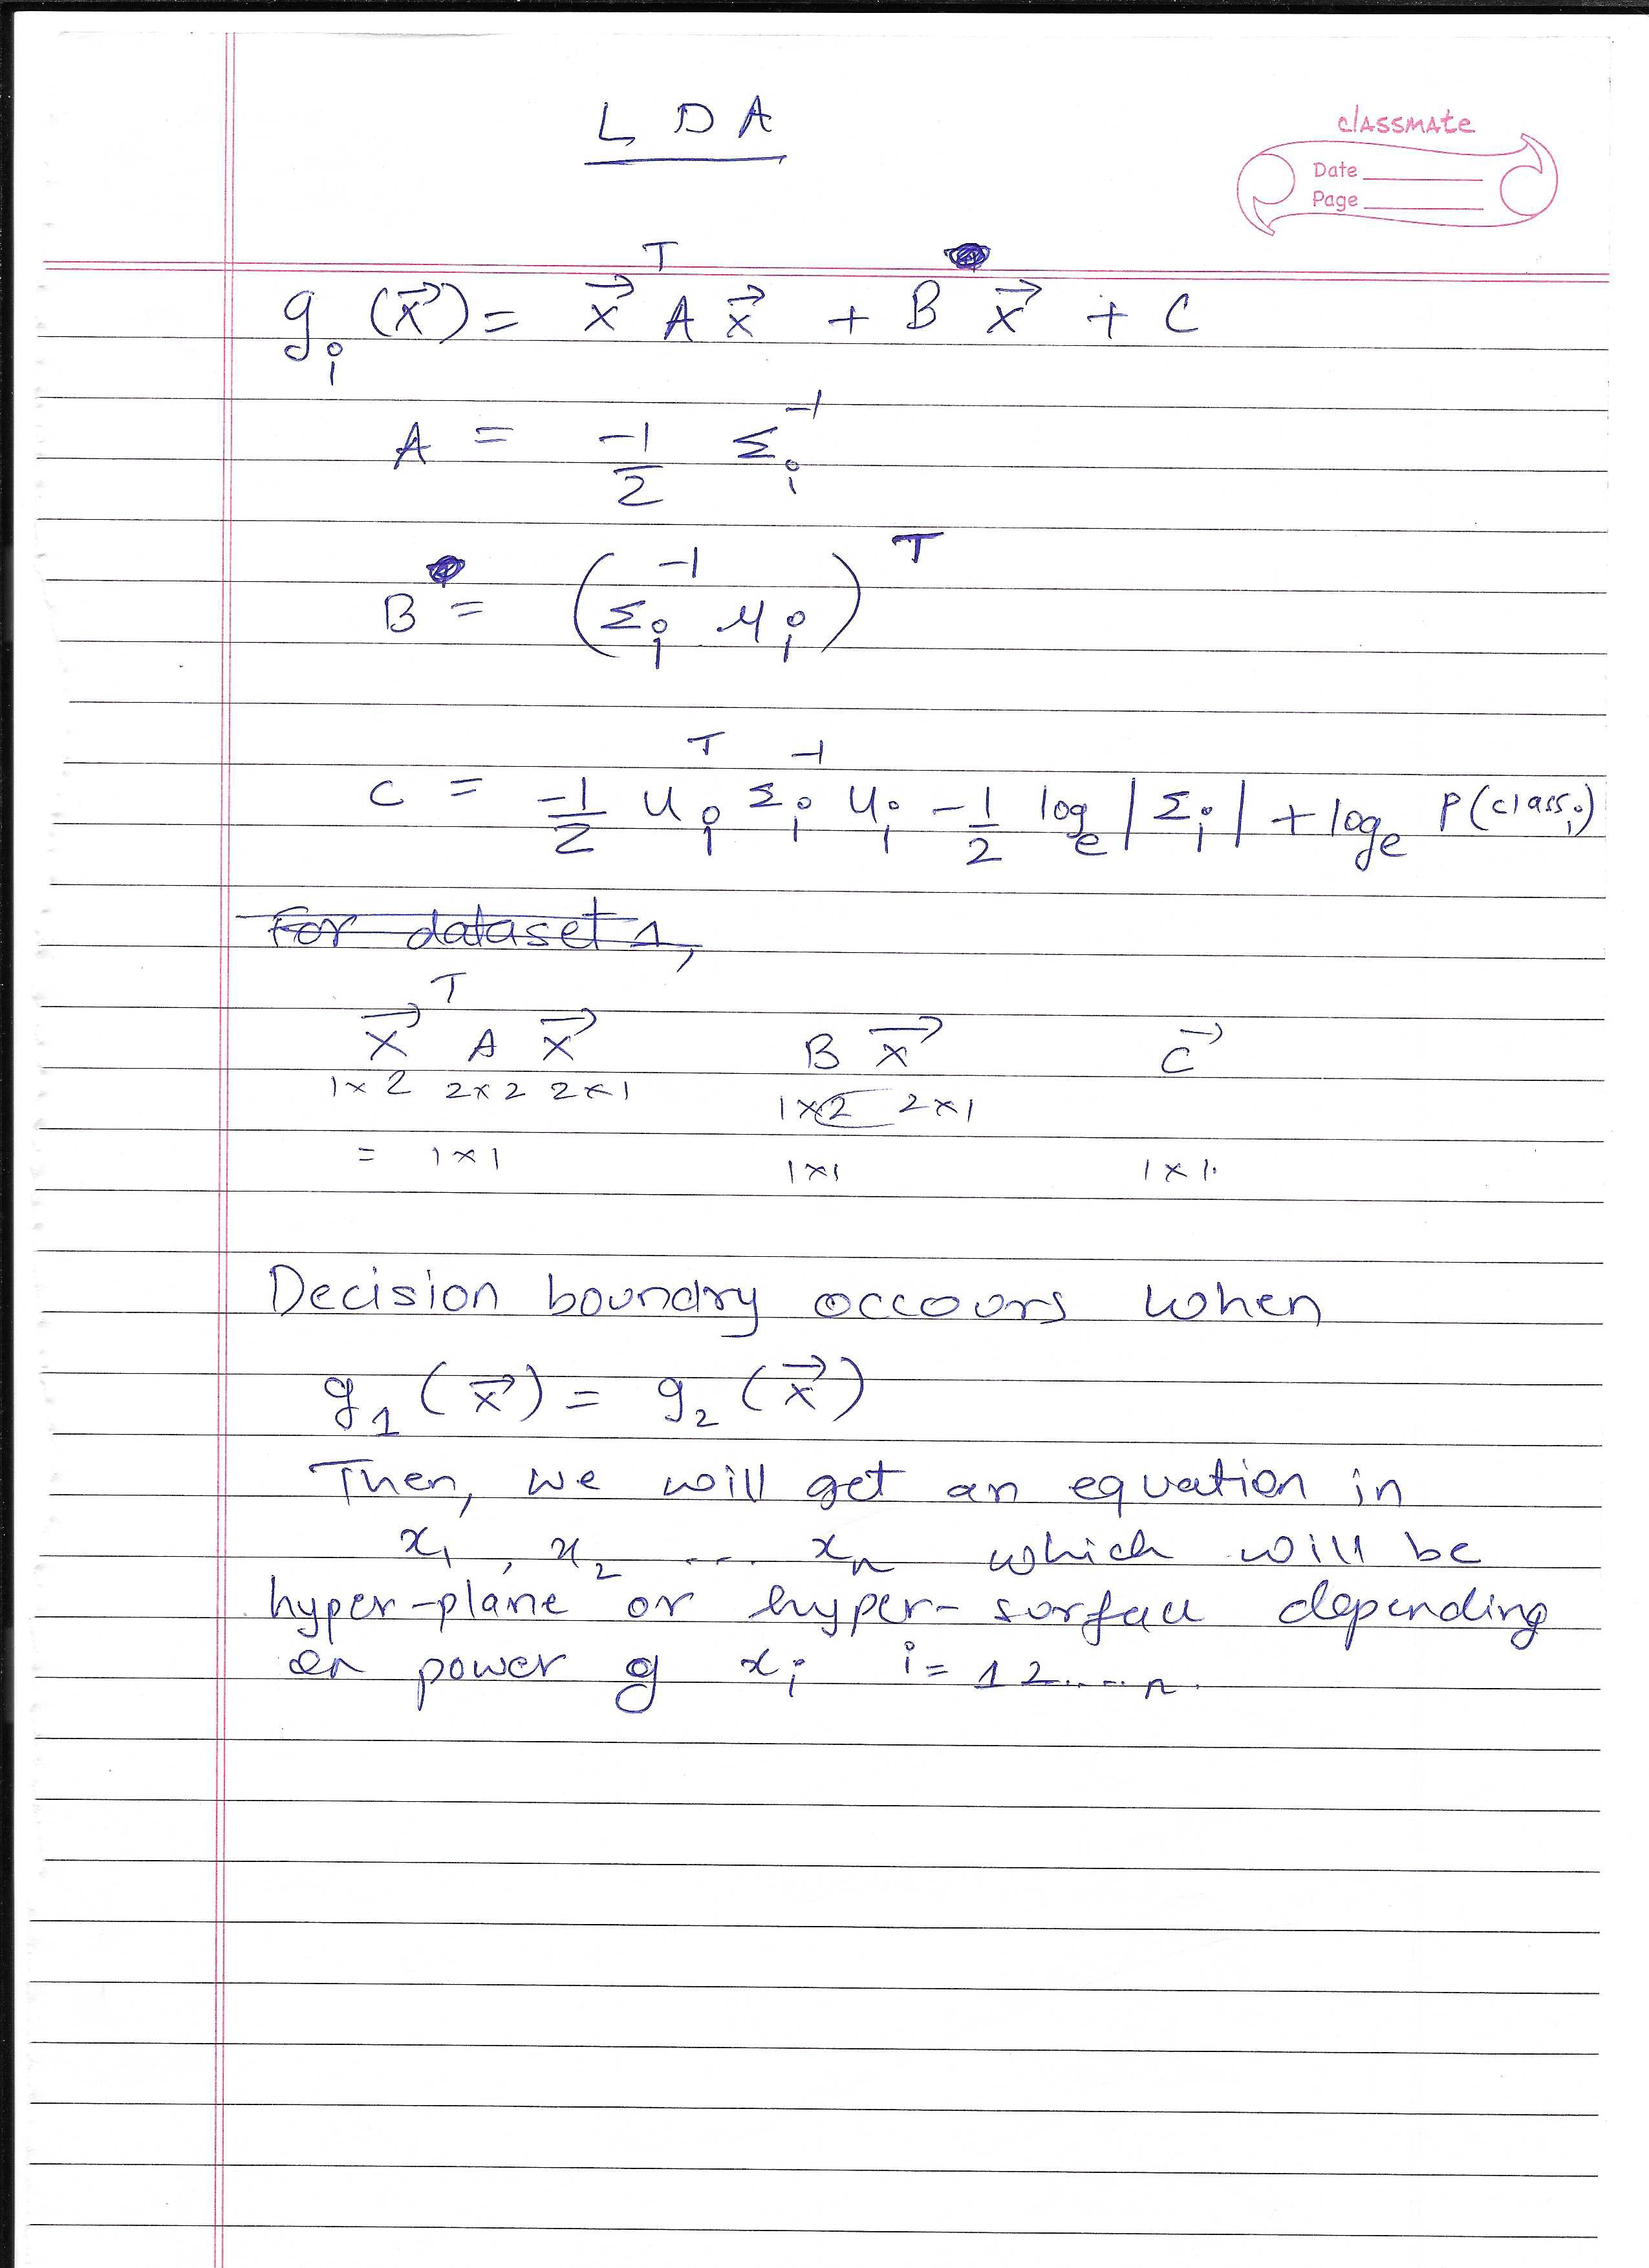 L D A
classmate
Date
Page
g_i (x⃗) = x⃗^T A x⃗ + B x⃗ + C
A = -1/2 Σ_i^-1
B = (Σ_i^-1 μ_i)^T
C = -1/2 μ_i^T Σ_i^-1 μ_i - 1/2 log_e |Σ_i| + log_e P(class_i)
For dataset 1,
x⃗^T A x⃗ B x⃗ C⃗
1×2 2×2 2×1 1×2 2×1
= 1×1 1×1 1×1.
Decision boundry occours when
g_1 (x⃗) = g_2 (x⃗)
Then, we will get an equation in
x_1, x_2 .... x_n which will be
hyper-plane or hyper-surface depending
on power of x_i i = 1 2.....n.